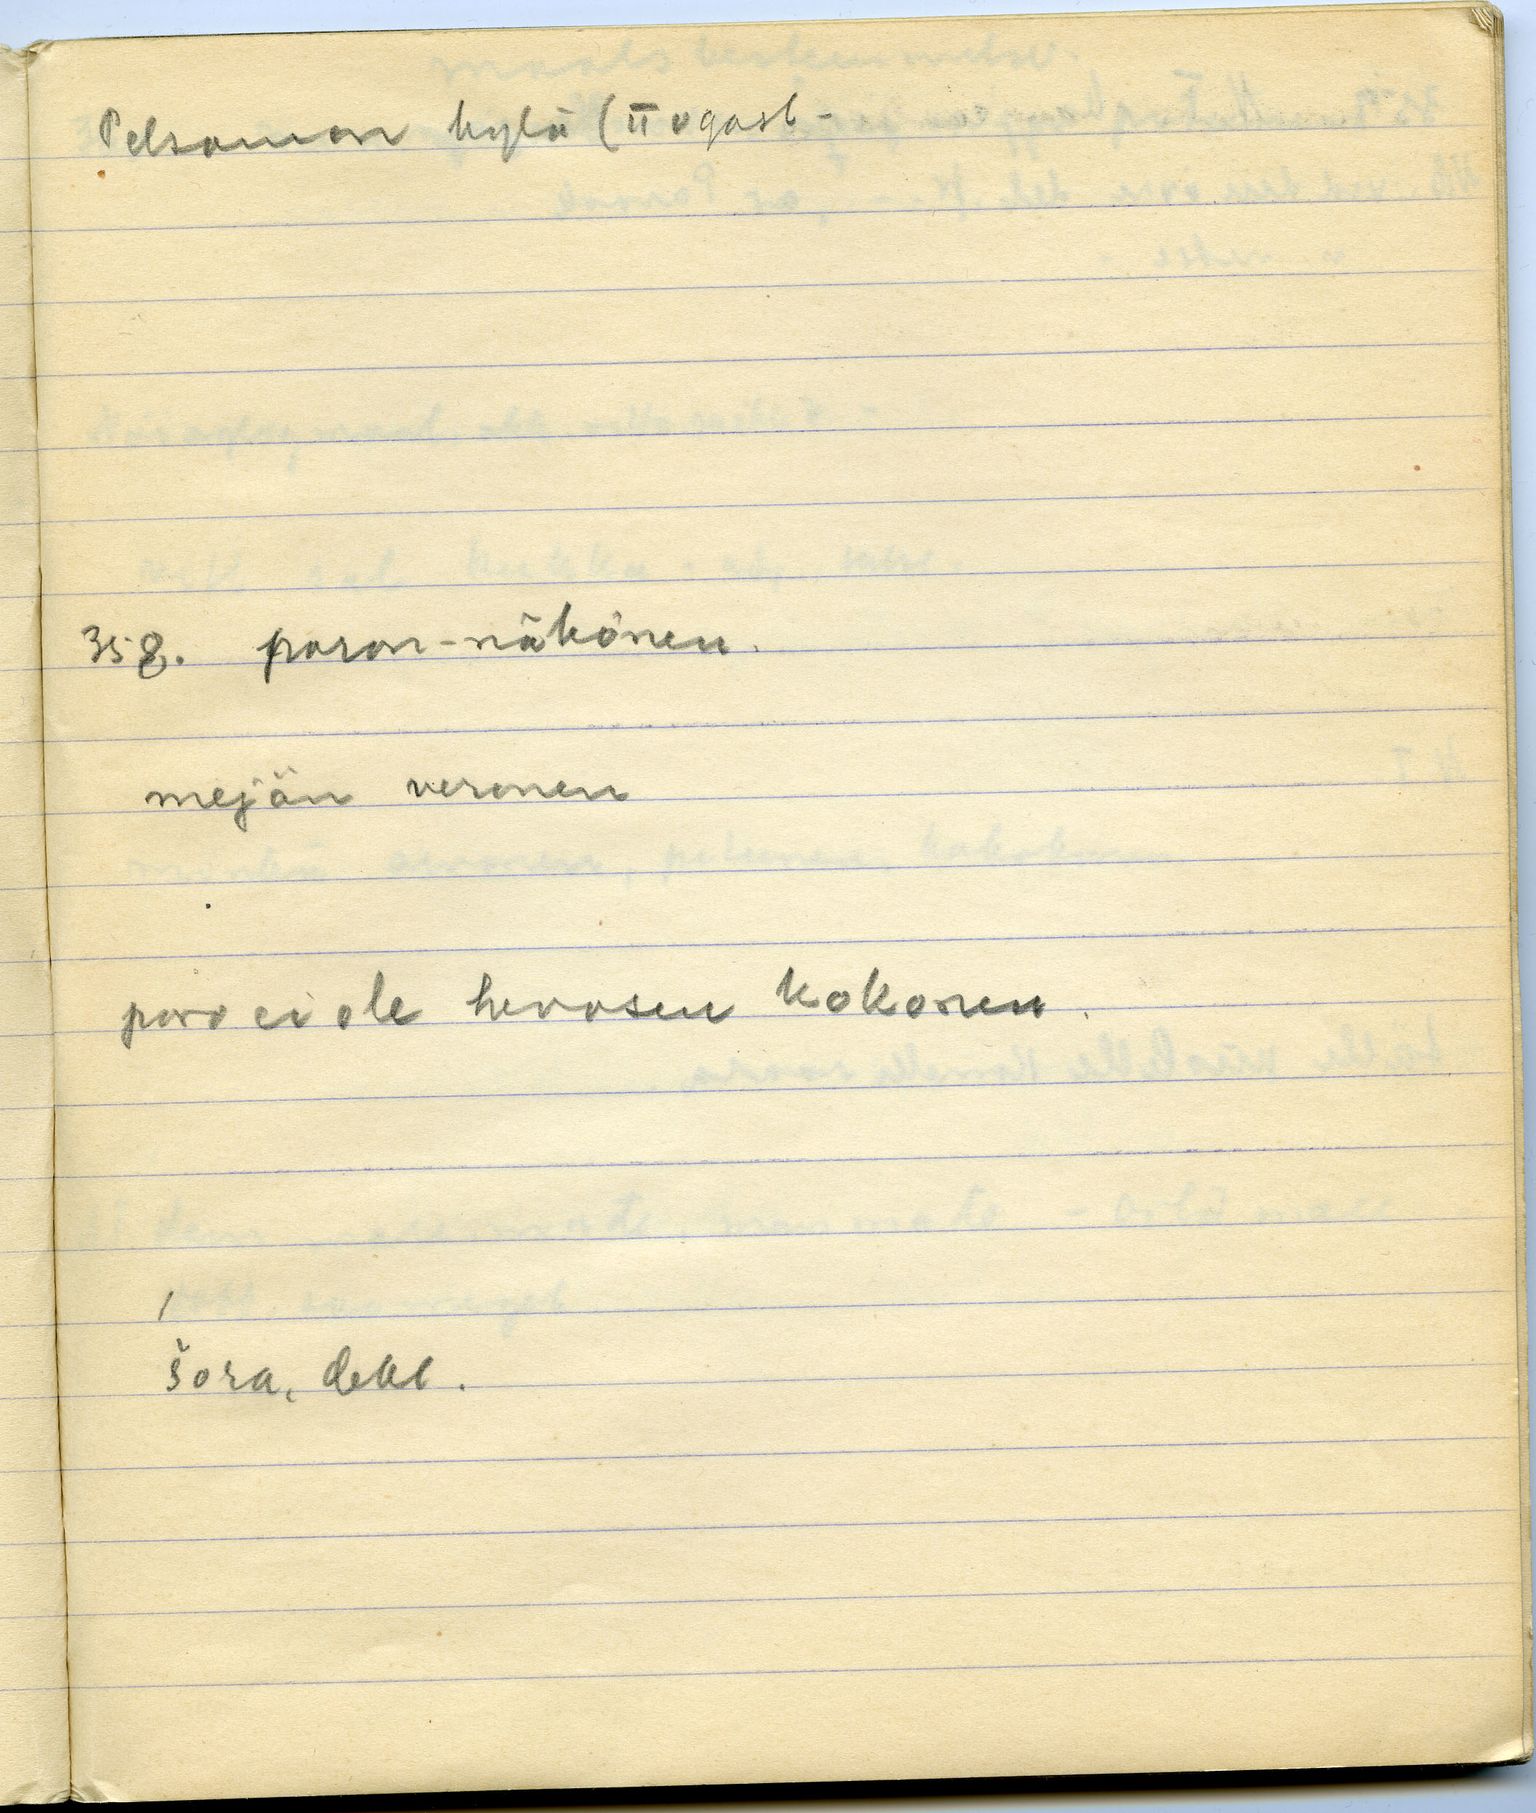 Pelsamon kylä (II ogast -
358. poron-näkönen.
mejän veronen
poro ei ole hevosen kokonen.
šora, dekl.